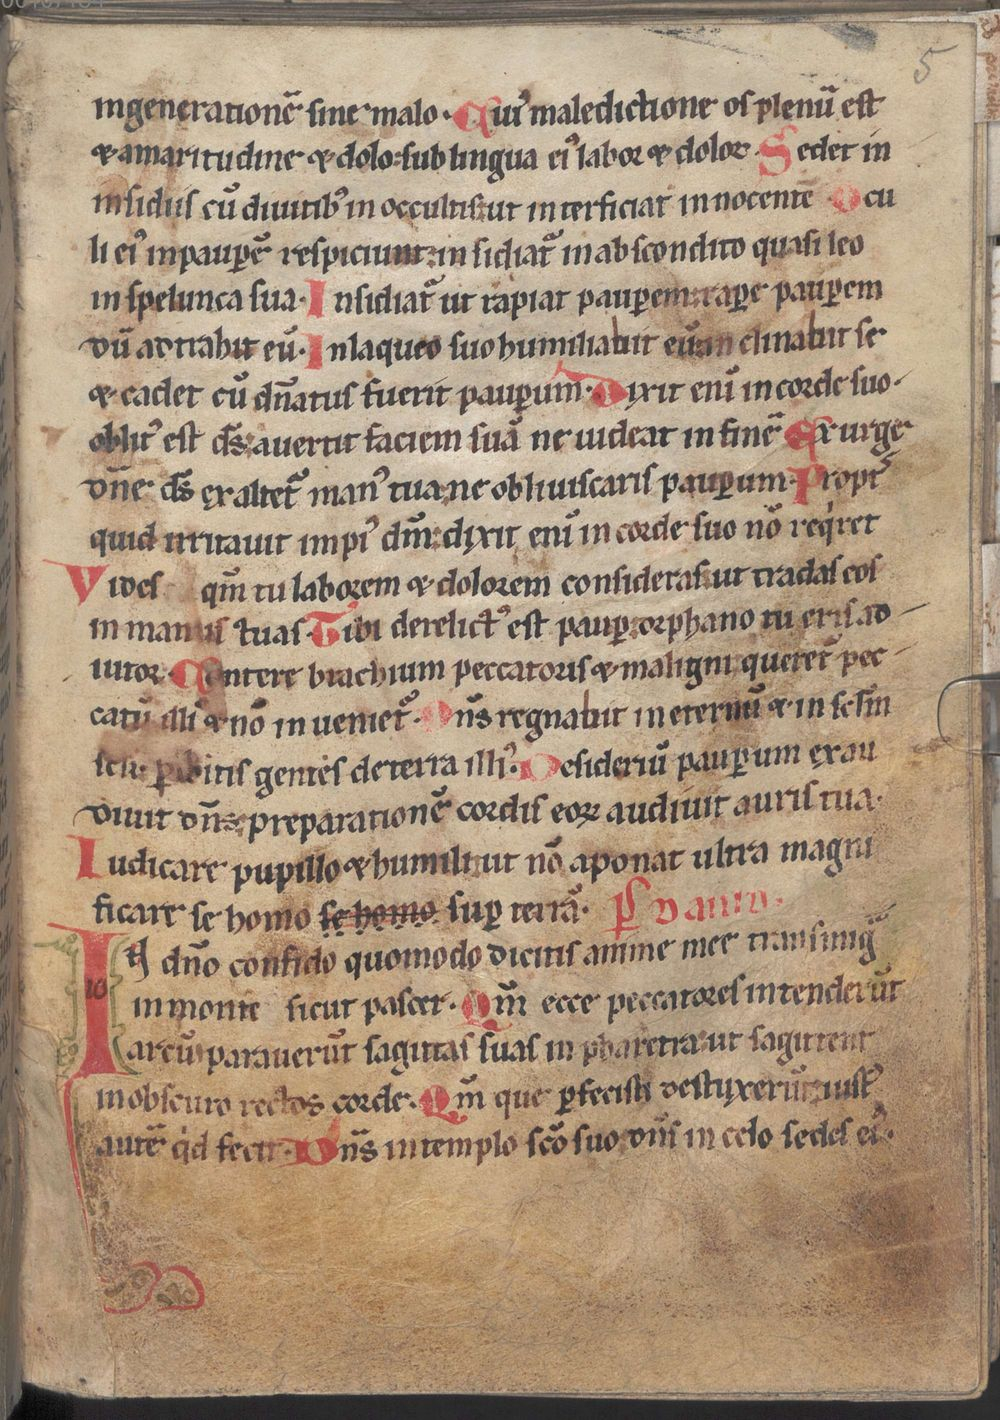 5
ingenerationē sine malo. Cuiꝰ maledictione os plenū est
⁊ amaritudine ⁊ dolo: sub lingua eiꝰ labor ⁊ dolor. Sedet in
insidiis cū diuitibꝫ in occultis: ut interficiat innocentē Ocu
li eiꝰ in pauꝑē respiciunt: insidiat᷑ in abscondito quasi leo
in spelunca sua. Insidiat᷑ ut rapiat pauꝑem: raꝑe pauꝑem
dū adtrahit eū. In laqueo suo humiliabit eū: inclinabit se
⁊ cadet cū dn̄atus fuerit pauꝑum. Dixit eni in corde suo.
oblitꝰ est ds̄: auertit faciem suā ne uideat in finē Exurge
dn̄e ds̄ exaltet᷑ manꝰ tua: ne obliuiscaris pauꝑum. Propt᷑
quid irritauit impiꝰ dm̄: dixit eni in corde suo nō reqͥret
Vides qm̄ tu laborem ⁊ dolorem consideras: ut tradas eos
in manus tuas. Tibi derelictꝰ est pauꝑ: orphano tu eris ad
iutor. Contere brachium peccatoris ⁊ maligni: queret᷑ pec
catū illiꝰ ⁊ nō inueniet᷑. Dn̄s regnabit in eternū ⁊ in sc̄lm
scli: ꝑibitis gentes de terra illiꝰ. Desideriū pauꝑum exau
diuit dn̄s: preparationē cordis eoꝝ audiuit auris tua.
Iudicare pupillo ⁊ humili: ut nō aponat ultra magni
ficare se homo se homo suꝑ terrā. Ps̄ Dauid.
IN dn̄o confido quomodo dicitis anime mee transmig᷑
in monte sicut passer. Qm̄ ecce peccatores intenderūt
arcū: parauerūt sagittas suas in pharetra: ut sagittent
in obscuro rectos corde. Qm̄ que ꝑfecisti destuxerūt: iustꝰ
autē qͥd fecit. Dn̄s in templo scō suo: dn̄s in celo sedes eiꝰ.